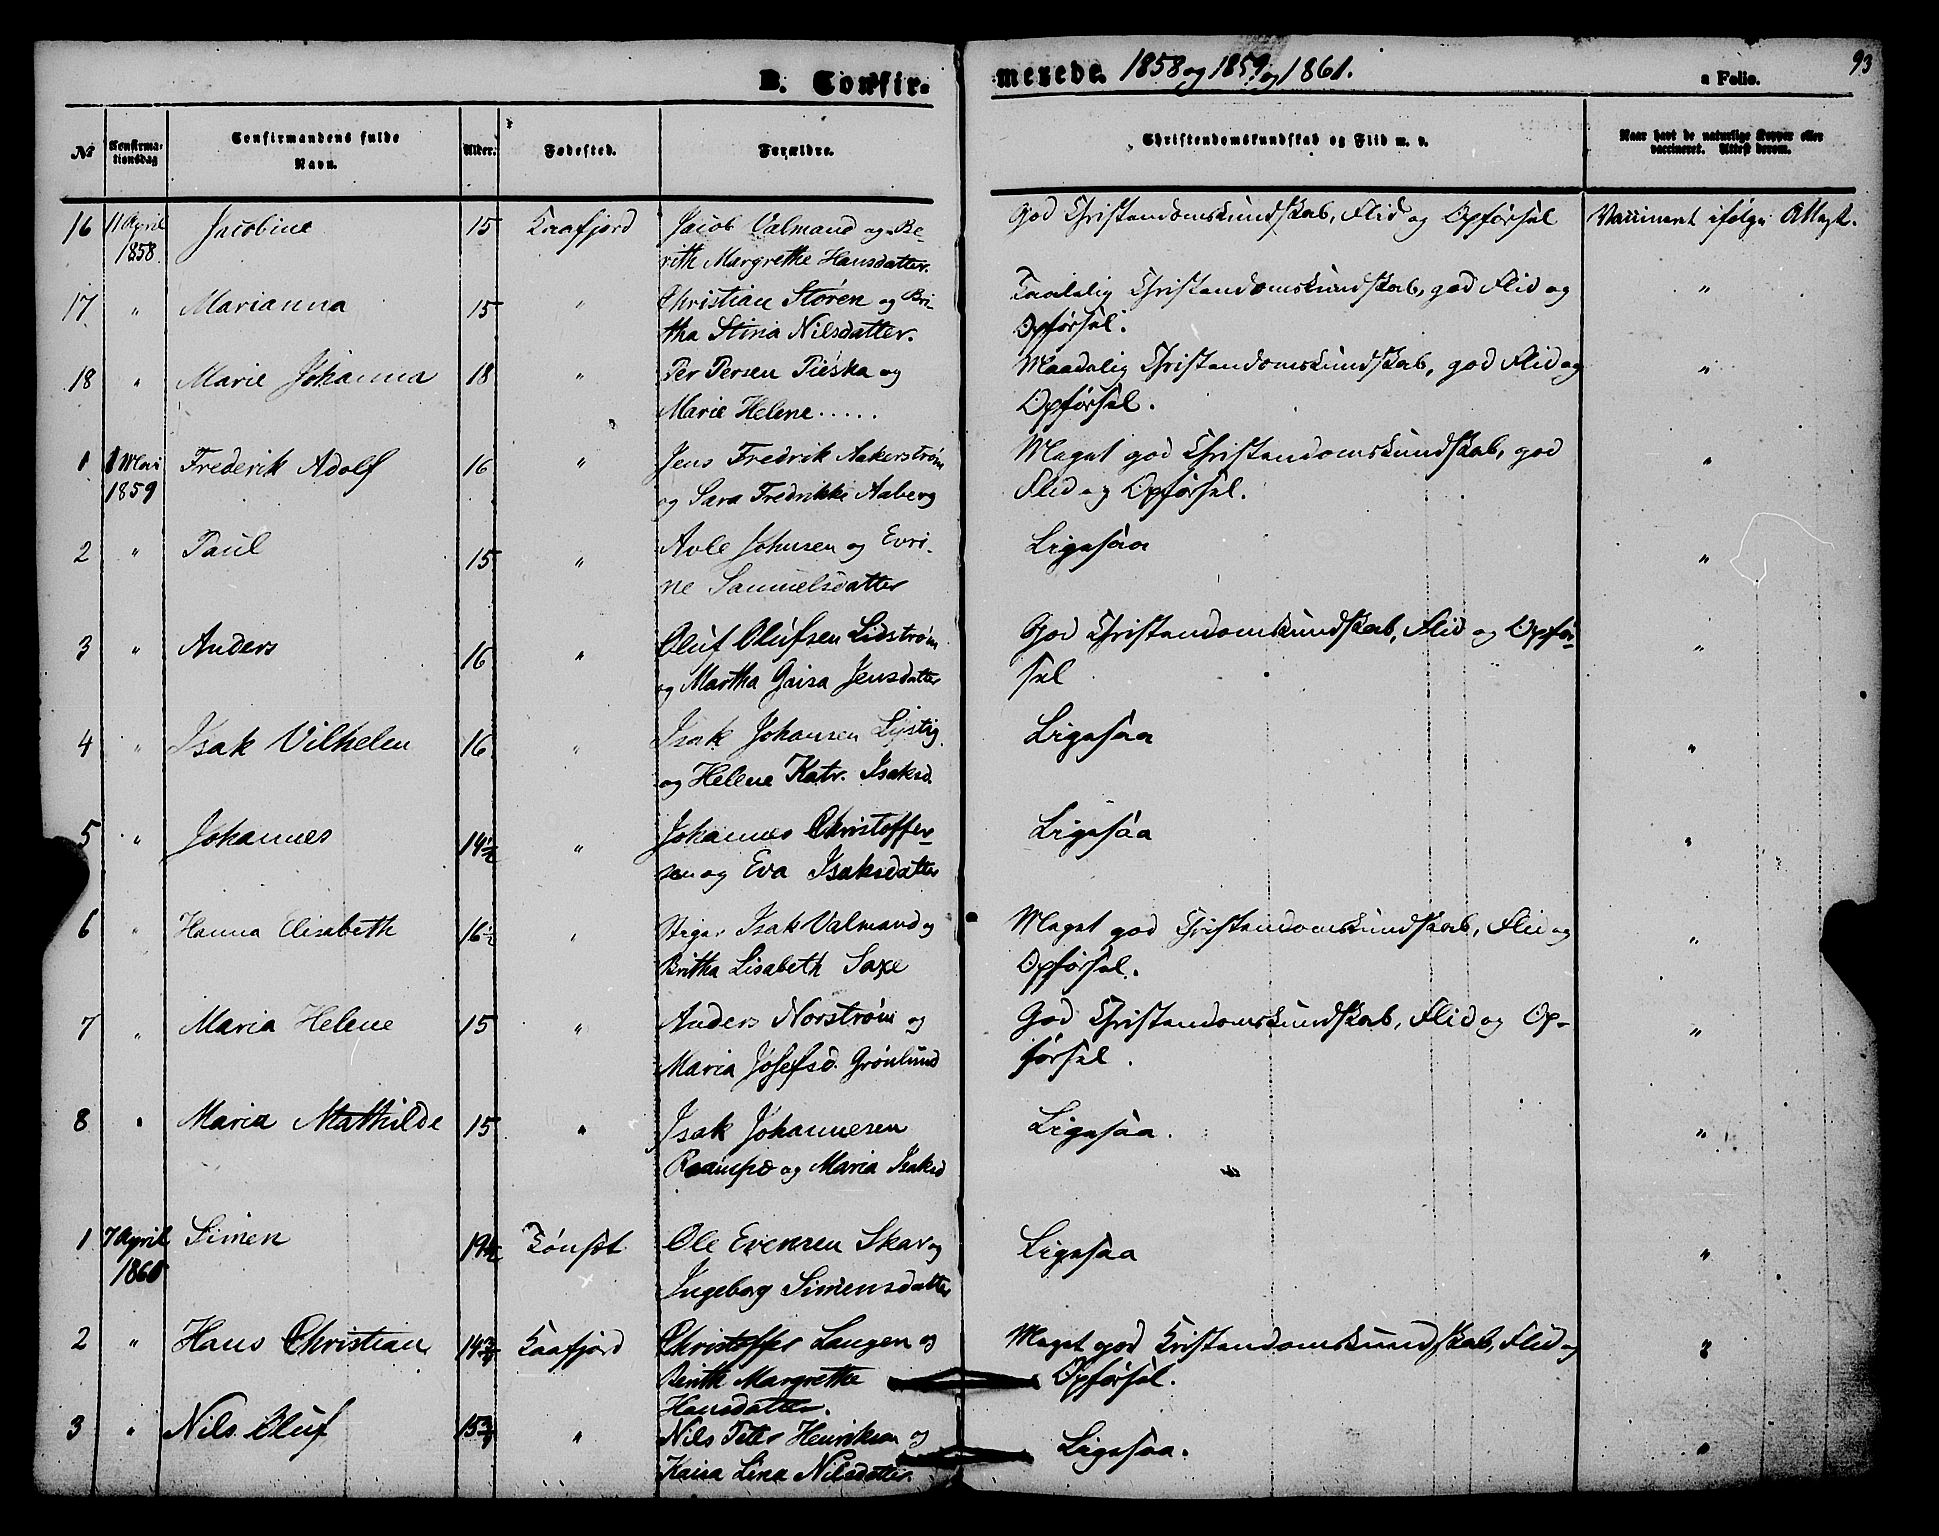 B. Confirmerede. 1858 og 1859 og 1861.
a Folio. 93
№
Confirmationsdag
Confirmandens fulde Navn.
Alder.
Fødested.
Forældre.
Christendomskundskab og Flid m. v.
Naar havt de naturlige Kopper eller vaccineret. Attest derom.
16 11 April Jacobine 15 Kaafjord Jacob Valmand og Be- God Christendomskundskab, Flid og Opførsel Vaccineret ifølge Attest.
1858 rith Margrethe Hansdatter.
17 " Marianna 15 " Christian Støren og Bri- Taalelig Christendomskundskab, god Flid og "
tha Stina Nilsdatter. Opførsel.
18 " Marie Johanna 18 " Per Persen Pieska og Maadelig Christendomskundskab, god Flid og "
Marie Helene..... Opførsel.
1 1 Mai Frederik Adolf 16 " Jens Fredrik Aakerstrøm Meget god Christendomskundskab, god "
1859 og Sara Fredrikke Aaberg Flid og Opførsel.
2 " Paul 15 " Avle Johnsen og Evri- Ligesaa "
ne Samuelsdatter
3 " Anders 16 " Oluf Olufsen Lidstrøm God Christendomskundskab, Flid og Opfør- "
og Martha Gaisa Jensdatter sel
4 " Isak Vilhelm 16 " Isak Johansen Lystig Ligesaa "
og Helene Katr. Isaksd.
5 " Johannes 14½ " Johannes Christoffer- Ligesaa "
sen og Eva Isaksdatter
6 " Hanna Elisabeth 16½ " Steger Isak Valmand og Meget god Christendomskundskab, Flid og "
Britha Lisabeth Saxe Opførsel.
7 " Maria Helene 15 " Anders Norstrøm og God Christendomskundskab, Flid og Op- "
Maria Josefsd. Grønlund førsel.
8 " Maria Mathilde 15 " Isak Johannesen Ligesaa. "
og Maria Isaksd
1 7 April Simen 19½ Tønset Ole Evensen Skar og Ligesaa "
1860 Ingeborg Simensdatter
2 " Hans Christian 14¾ Kaafjord Christoffer Langen og Meget god Kristendomskundskab, Flid og "
Berith Margrethe Opførsel.
Hansdatter.
3 " Nils Oluf 15¾ " Nils Peter Henriksen og Ligesaa. "
Kaisa Lina Nilsdatter.